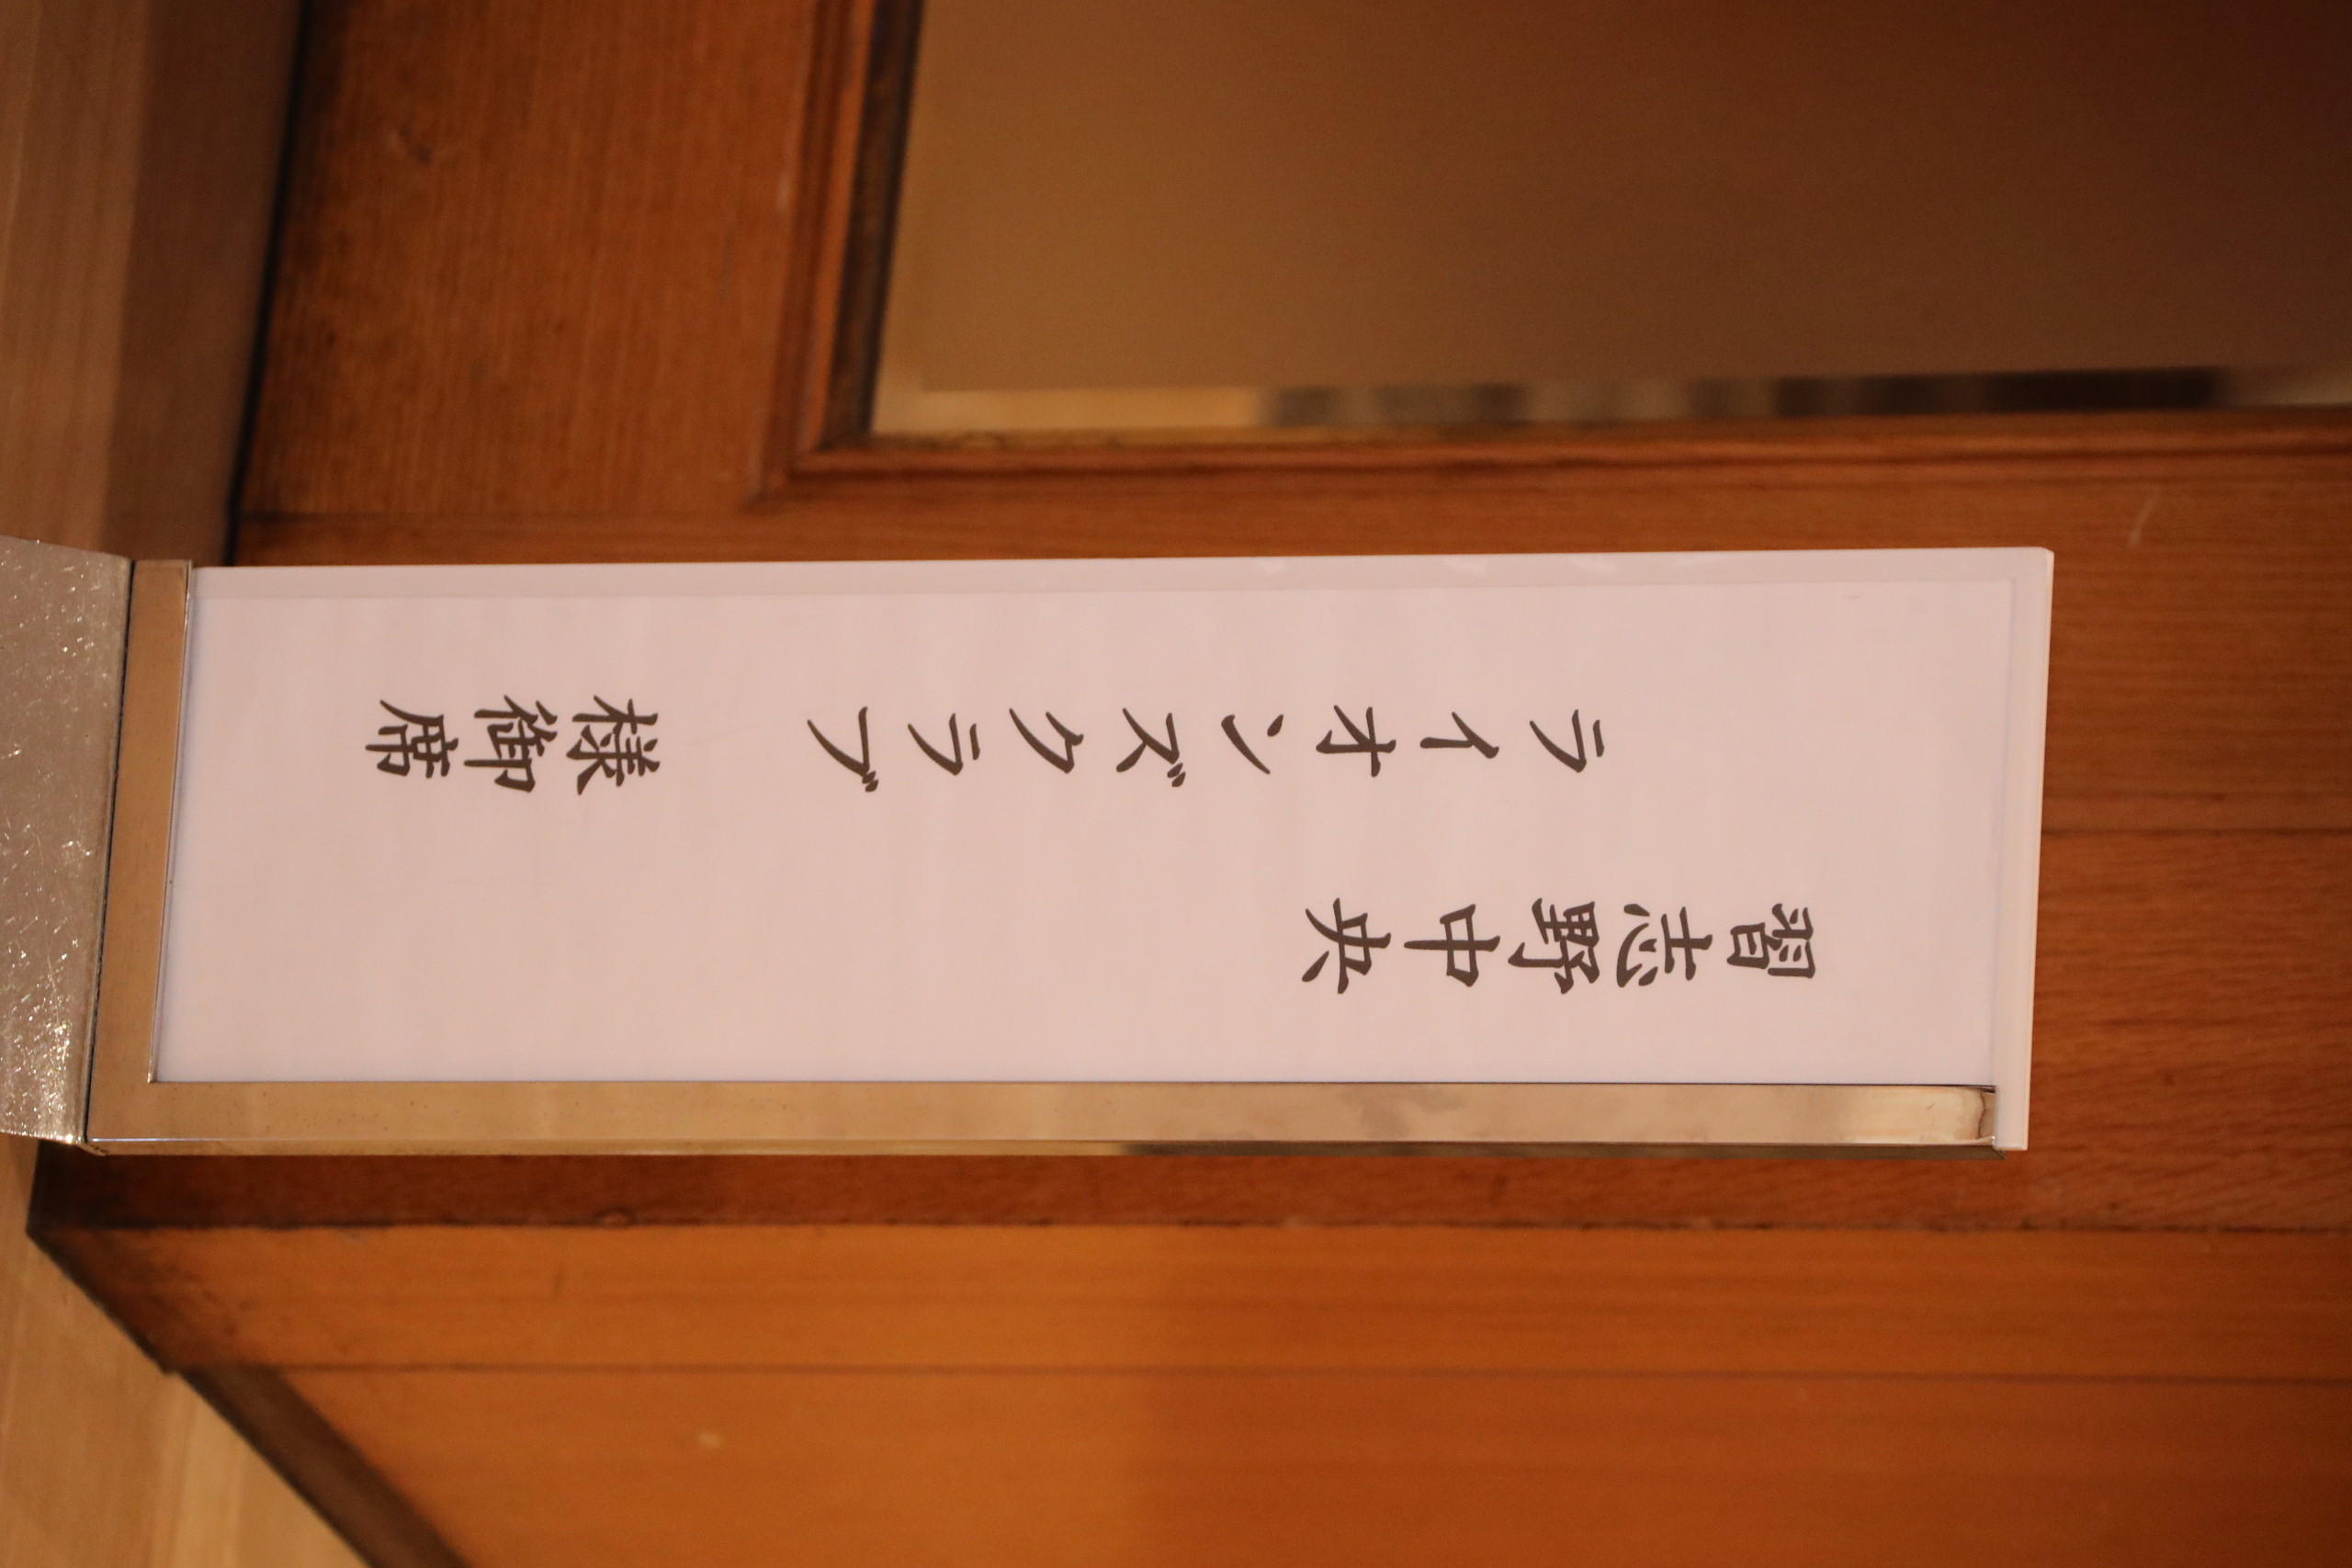 習志野中央
ライオンズクラブ 様御席